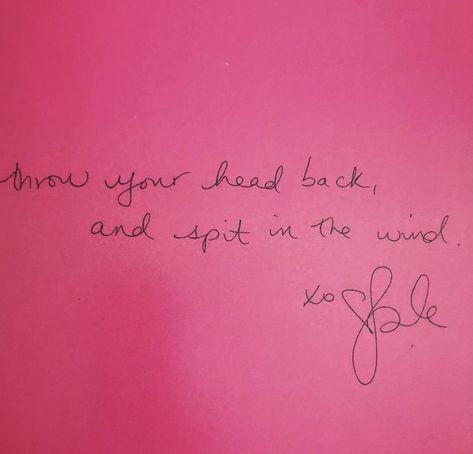 throw your head back,
and spit in the wind.
xo